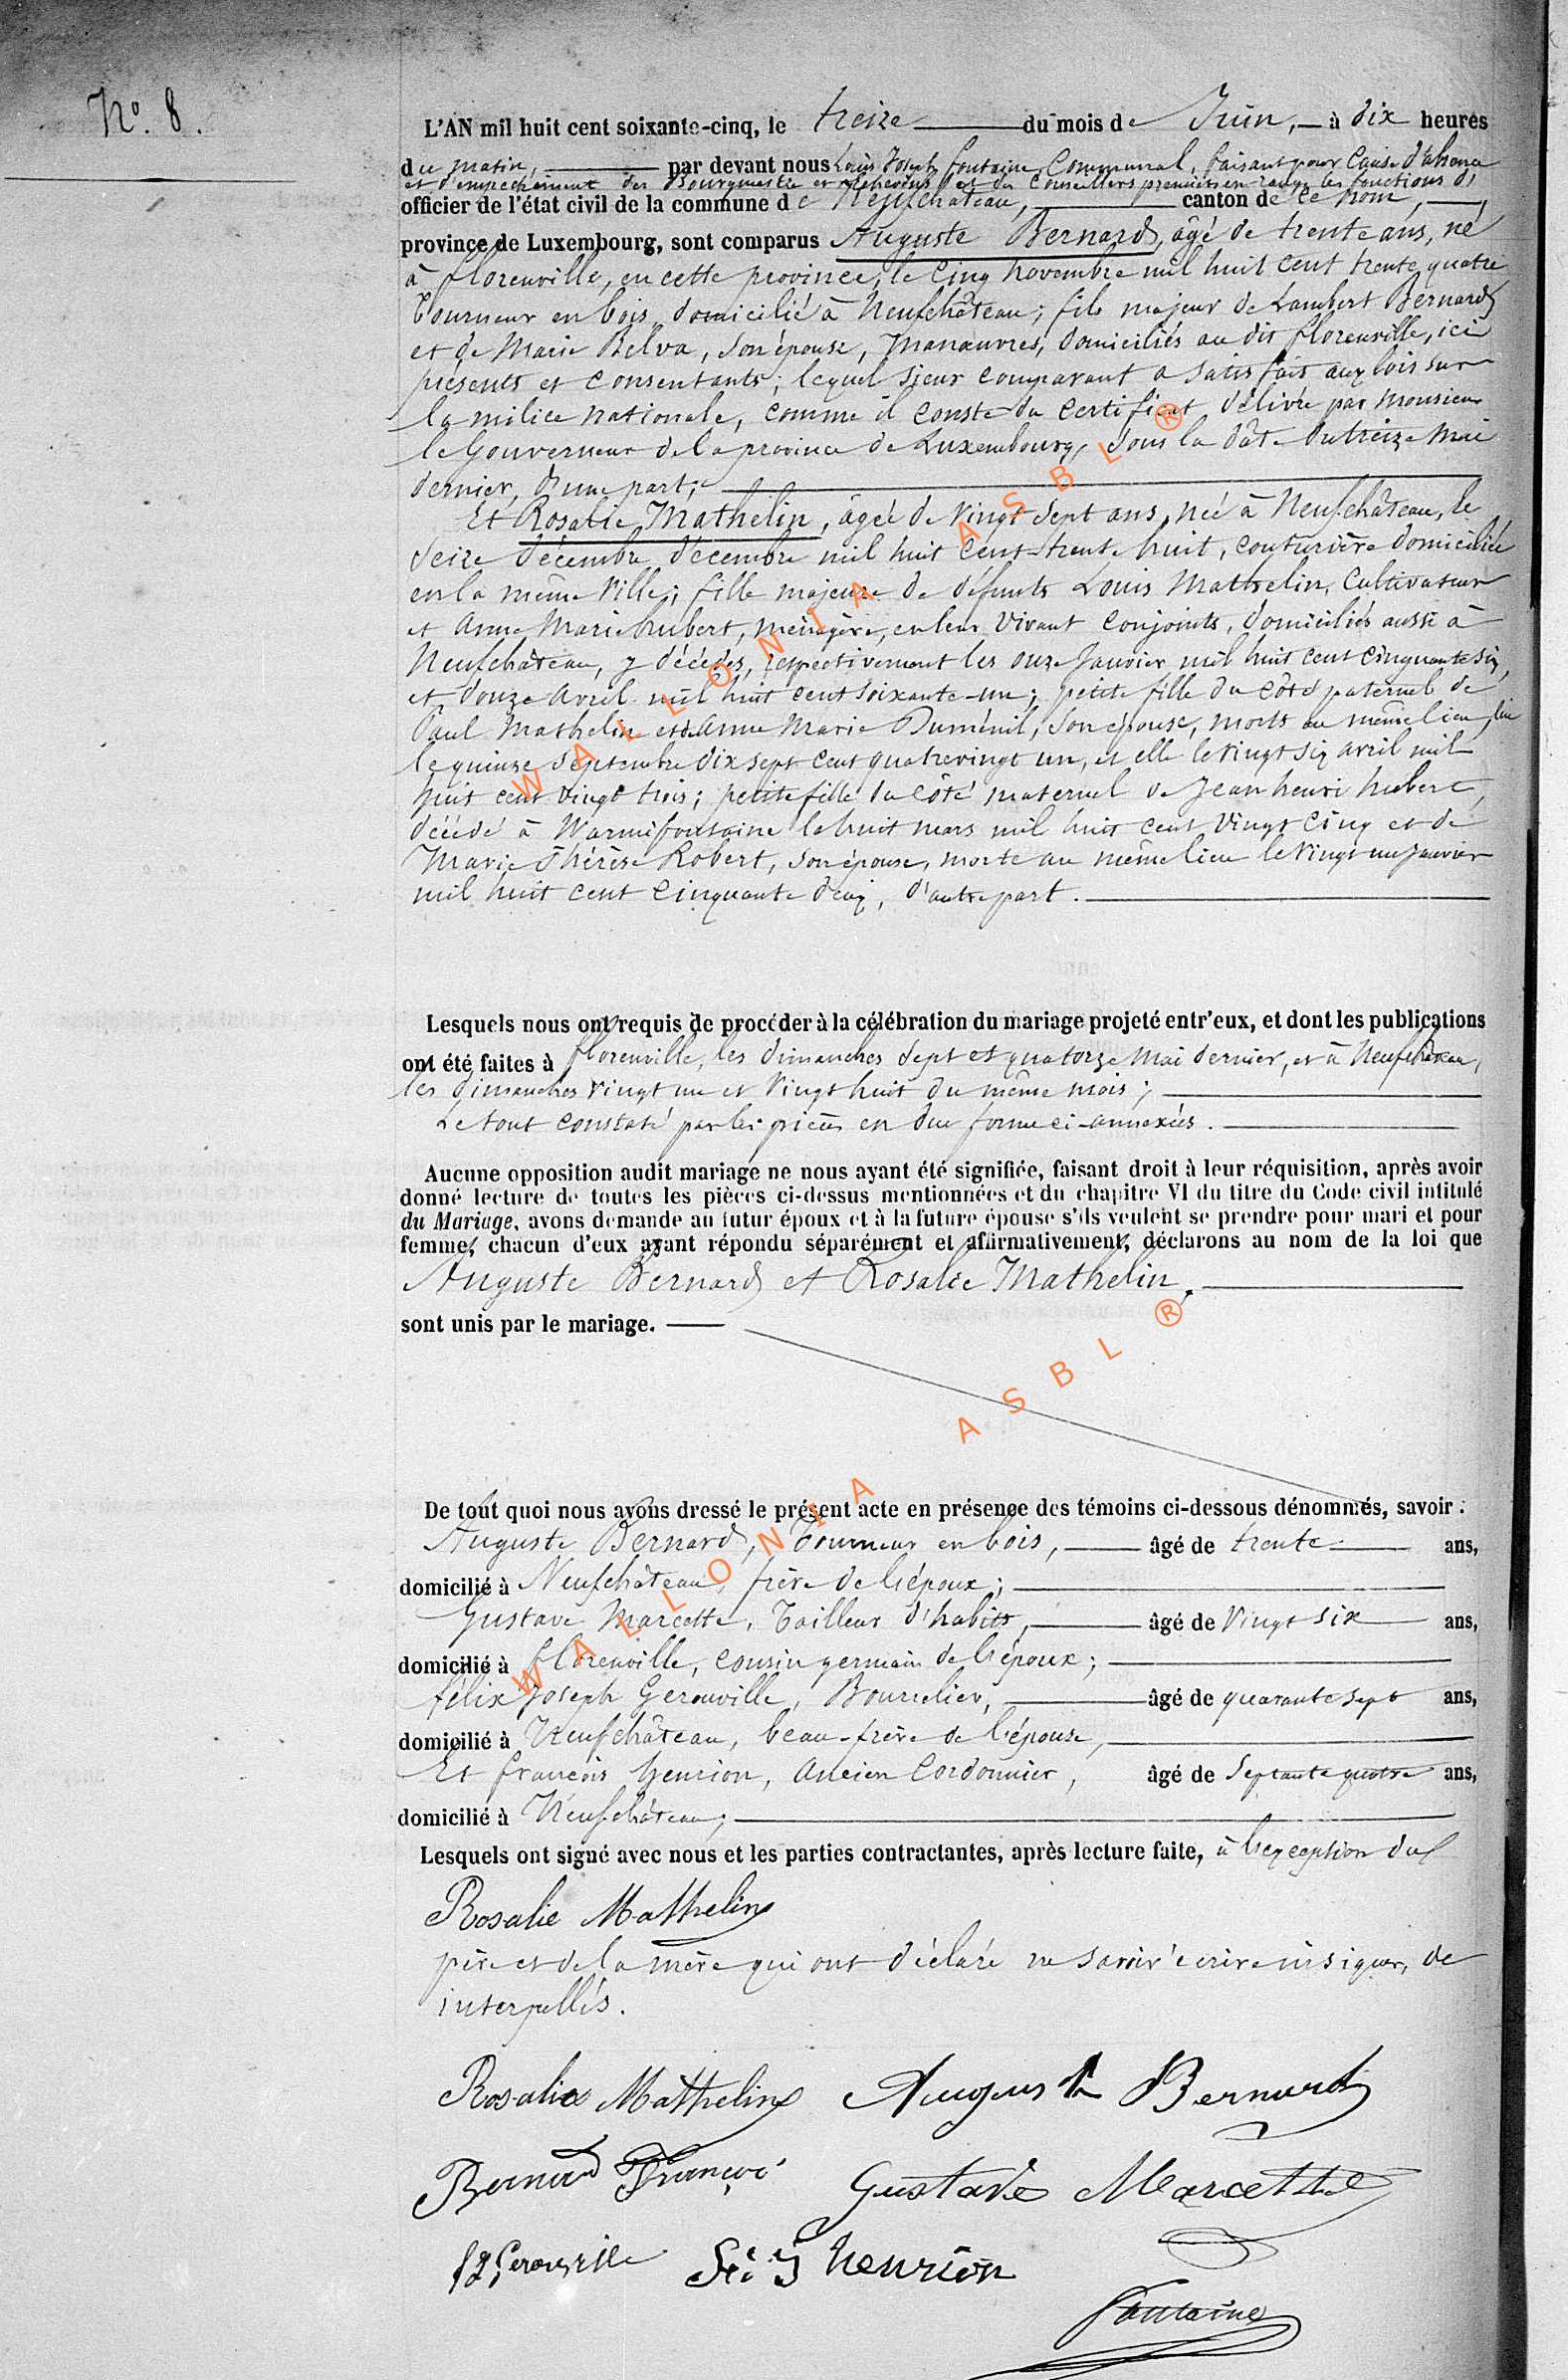 N° 8.
L'AN mil huit cent soixante-cinq, le treize du mois de Juin, à dix heures
du matin, par devant nous Louis Joseph fontaine, Communal, faisant pour Cause d'absence
et d'empechement des Bourgmestre et échevins et des Conseillers premiers en rang les fonctions d'
officier de l'état civil de la commune de Neufchâteau, canton de ce nom,
province de Luxembourg, sont comparus Auguste Bernard, âgé de trente ans, né
à florenville, en cette province, le Cinq novembre mil huit cent trente quatre
Tourneur en bois, domicilié à Neufchâteau; fils majeur de Lambert Bernard
et de Marie Belva, son épouse, manœuvres, domiciliés au dit florenville, ici
présents et consentants; lequel sieur comparant a satisfait aux lois sur
la milice nationale, comme il conste du certificat délivré par monsieur
le Gouverneur de la province de Luxembourg, sous la date du treize mai
dernier, d'une part;
Et Rosalie Mathelin, âgée de vingt sept ans, née à Neufchâteau, le
seize décembre décembre mil huit cent trente huit, couturière domiciliée
en la même Ville; fille majeure de défunts Louis Mathelin, Cultivateur
et Anne Marie hubert, ménagère, en leur Vivant Conjoints, domiciliés aussi à
Neufchâteau, y décédés, respectivement les onze Janvier mil huit cent cinquante six,
et douze avril mil huit cent soixante-un; petite fille du côté paternel de
Paul Mathelin et de Anne Marie Duménil, son épouse, morts au même lieu, lui
le quinze Septembre dix sept cent quatrevingt un, et elle le vingt six avril mil
huit cent vingt trois; petite fille du côté maternel de Jean henri hubert,
décédé à Warmifontaine le huit mars mil huit cent vingt cinq et de
Marie Thérèse Robert, son épouse, morte au même lieu le vingt un Janvier
mil huit cent cinquante deux, d'autre part.
Lesquels nous ont requis de procéder à la célébration du mariage projeté entr'eux, et dont les publications
ont été faites à florenville, les dimanches sept et quatorze mai dernier, et à Neufchâteau,
les dimanches vingt un et vingt huit du même mois;
Le tout constaté par les pièces en due forme ci-annexées.
Aucune opposition audit mariage ne nous ayant été signifiée, faisant droit à leur réquisition, après avoir
donné lecture de toutes les pièces ci-dessus mentionnées et du chapitre VI du titre du Code civil intitulé
du Mariage, avons demande au futur époux et à la future épouse s'ils veulent se prendre pour mari et pour
femme, chacun d'eux ayant répondu séparément et affirmativement, déclarons au nom de la loi que
Auguste Bernard et Rosalie Mathelin,
sont unis par le mariage.
De tout quoi nous avons dressé le présent acte en présence des témoins ci-dessous dénommés, savoir :
Auguste Bernard, Tourneur en bois, âgé de trente ans,
domicilié à Neufchâteau, frère de l'époux;
Gustave Marcette, Tailleur d'habits, âgé de vingt six ans,
domicilié à florenville, cousin germain de l'époux;
félix Joseph Gerouville, Bourrelier, âgé de quarante sept ans,
domicilié à Neufchâteau, beau-frère de l'épouse,
Et françois henrion, Ancien Cordonnier, âgé de septante quatre ans,
domicilié à Neufchâteau;
Lesquels ont signé avec nous et les parties contractantes, après lecture faite, à l'exception du
Rosalie Mathelin
père et de la mère qui ont déclaré ne savoir écrire ni signer, de
interpellés.
Rosalie Mathelin Auguste Bernard
Bernard François Gustave Marcette
fJ Gerouville henrion
Fontaine
WALLONIA ASBL ®
WALLONIA ASBL ®